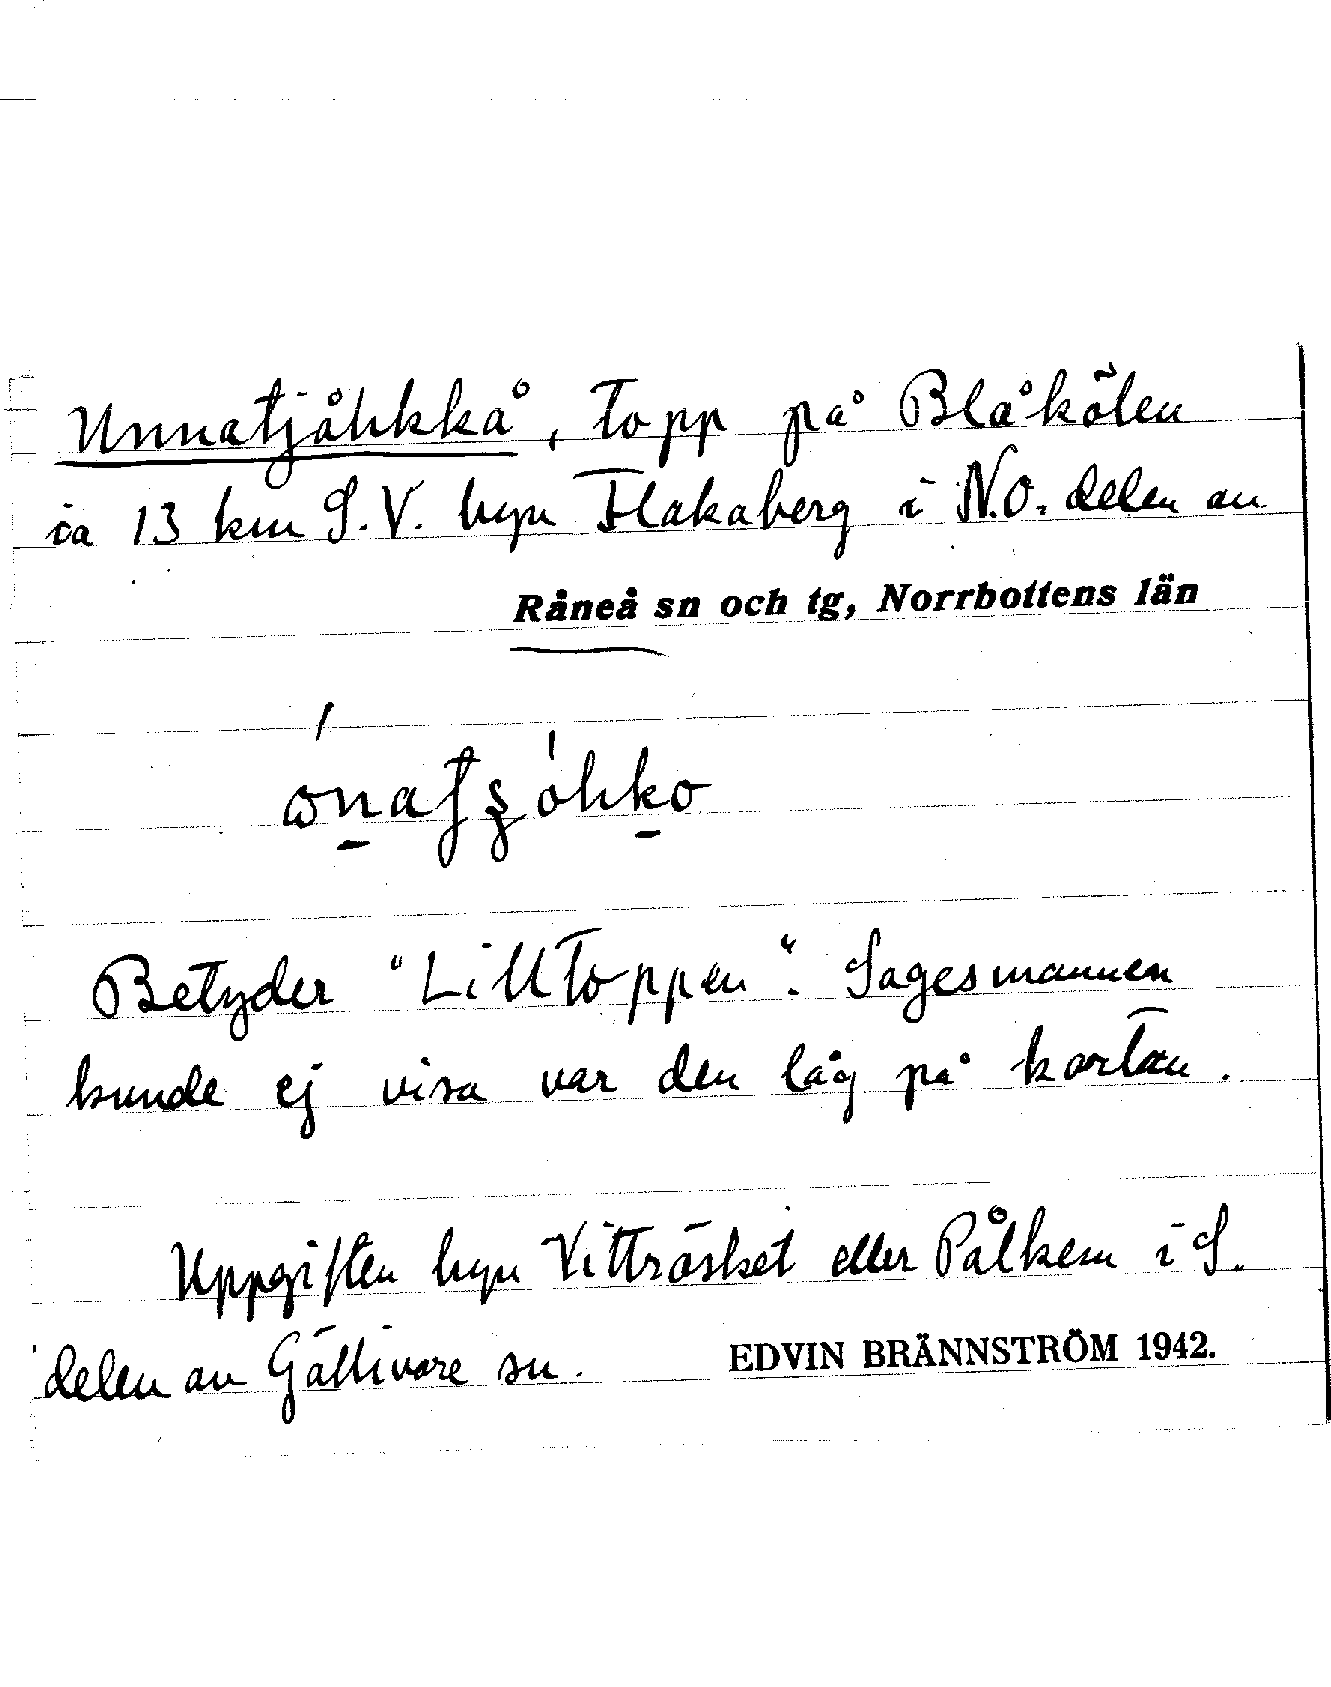 Unnatjåhkkå, topp på Blåkölen
ca 13 km S.V. byn Flakaberg i N.O. delen av
Råneå sn och tg, Norrbottens län
Betyder "Lilltoppen". Sagesmannen
kunde ej visa var den låg på kartan.
Uppgiften byn Vitträsket eller Pålkem i S.
delen av Gällivare sn. EDVIN BRÄNNSTRÖM 1942.